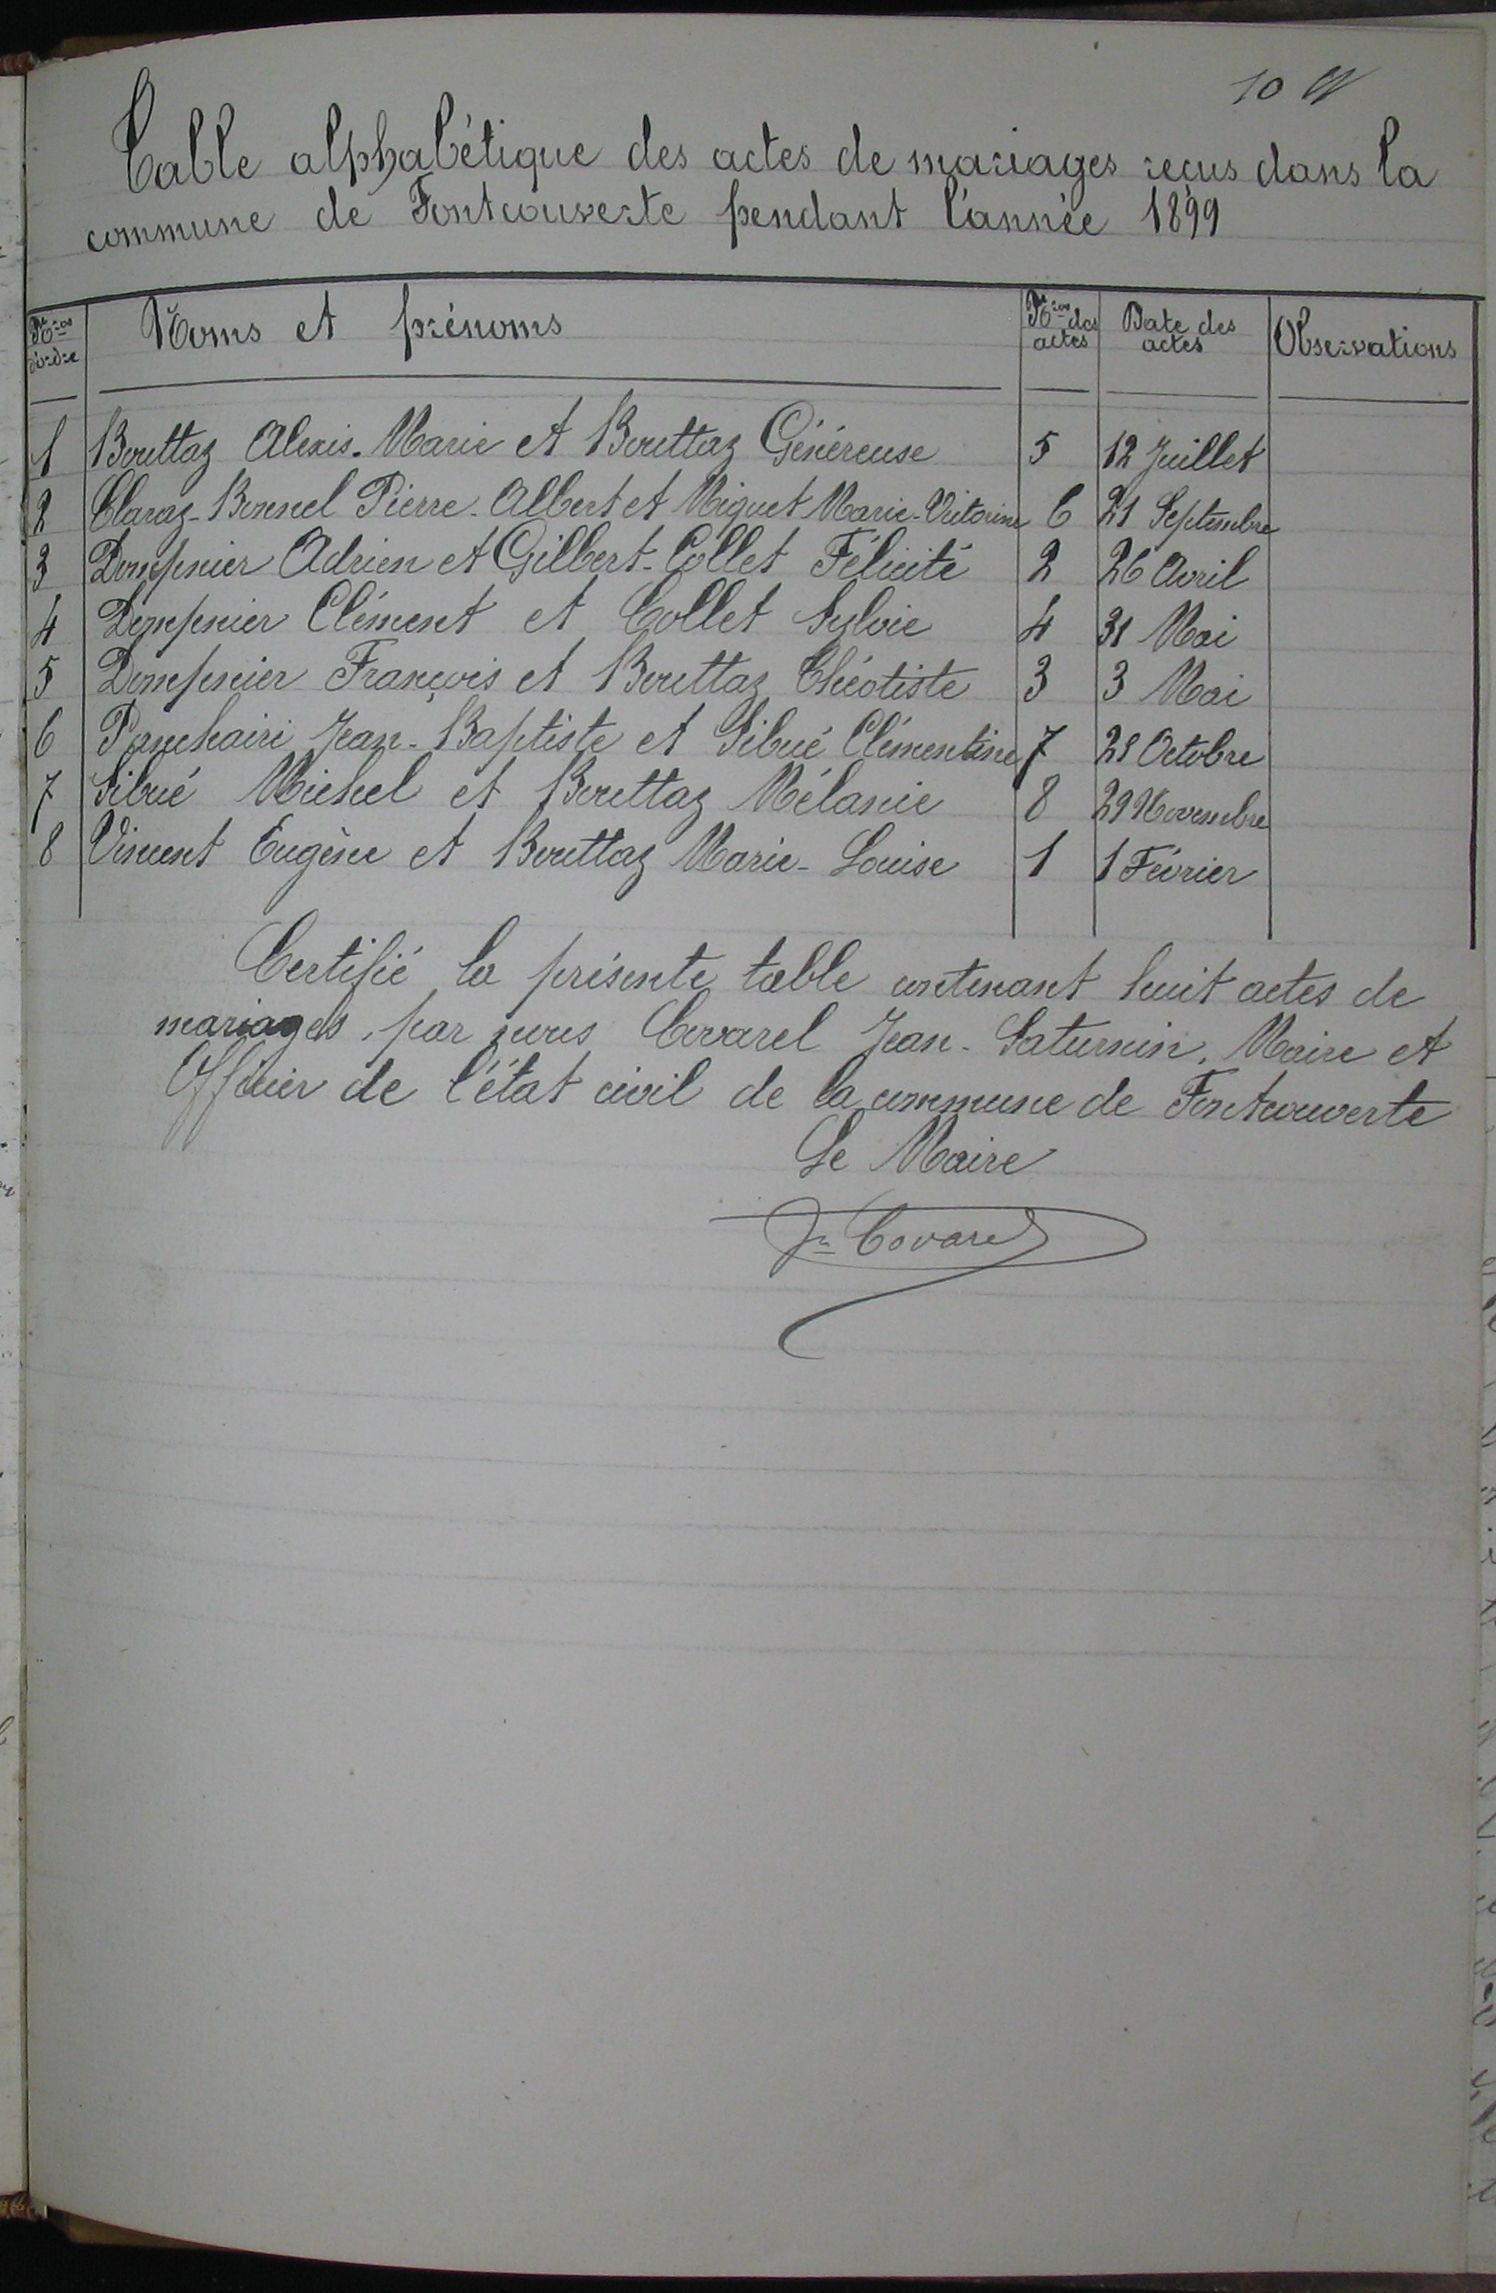 10
Table alphabétique des actes de mariages reçus dans la
commune de Fontcouverte pendant l'année 1899
Nros d'ordre | Noms et prénoms | Nros des actes | Date des actes | Observations
1 Bouttaz Alexis-Marie et Bouttaz Généreuse 5 12 Juillet
2 Claraz-Bonnel Pierre-Albert et Miguet Marie-Victorine 6 21 Septembre
3 Dompnier Adrien et Gilbert-Collet Félicité 2 26 Avril
4 Dompnier Clément et Collet Sylvie 4 31 Mai
5 Dompnier François et Bouttaz Théotiste 3 3 Mai
6 Panchairi Jean-Baptiste et Sibué Clémentine 7 28 Octobre
7 Sibué Michel et Bouttaz Mélanie 8 29 Novembre
8 Vincent Eugène et Bouttaz Marie-Louise 1 1 Février
Certifié la présente table contenant huit actes de
mariages, par nous Covarel Jean-Saturnin, Maire et
Officier de l'état civil de la commune de Fontcouverte
Le Maire
Jn Covarel